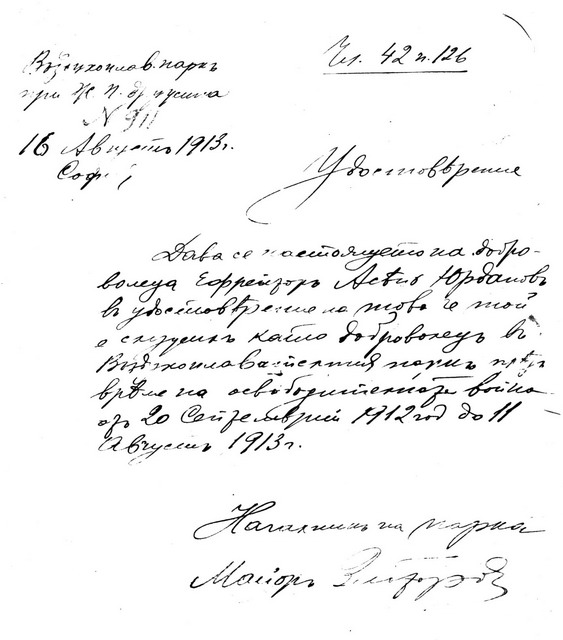 Въздухоплав. паркъ
при Ж. П. дружина
N 911
16 Августъ 1913 г.
Соф
Чл. 42 п. 126
Удостовѣрение
Дава се настоящето на добро-
волеца Ефрейторъ Асѣнъ Юрдановъ
въ удостовѣрение на това че той
е служилъ като доброволецъ въ
Въздухоплавателния паркъ презъ
врѣме на освободителната война
отъ 20 Септемврий 1912 год до 11
Августъ 1913 г.
Началникъ на парка
Майоръ